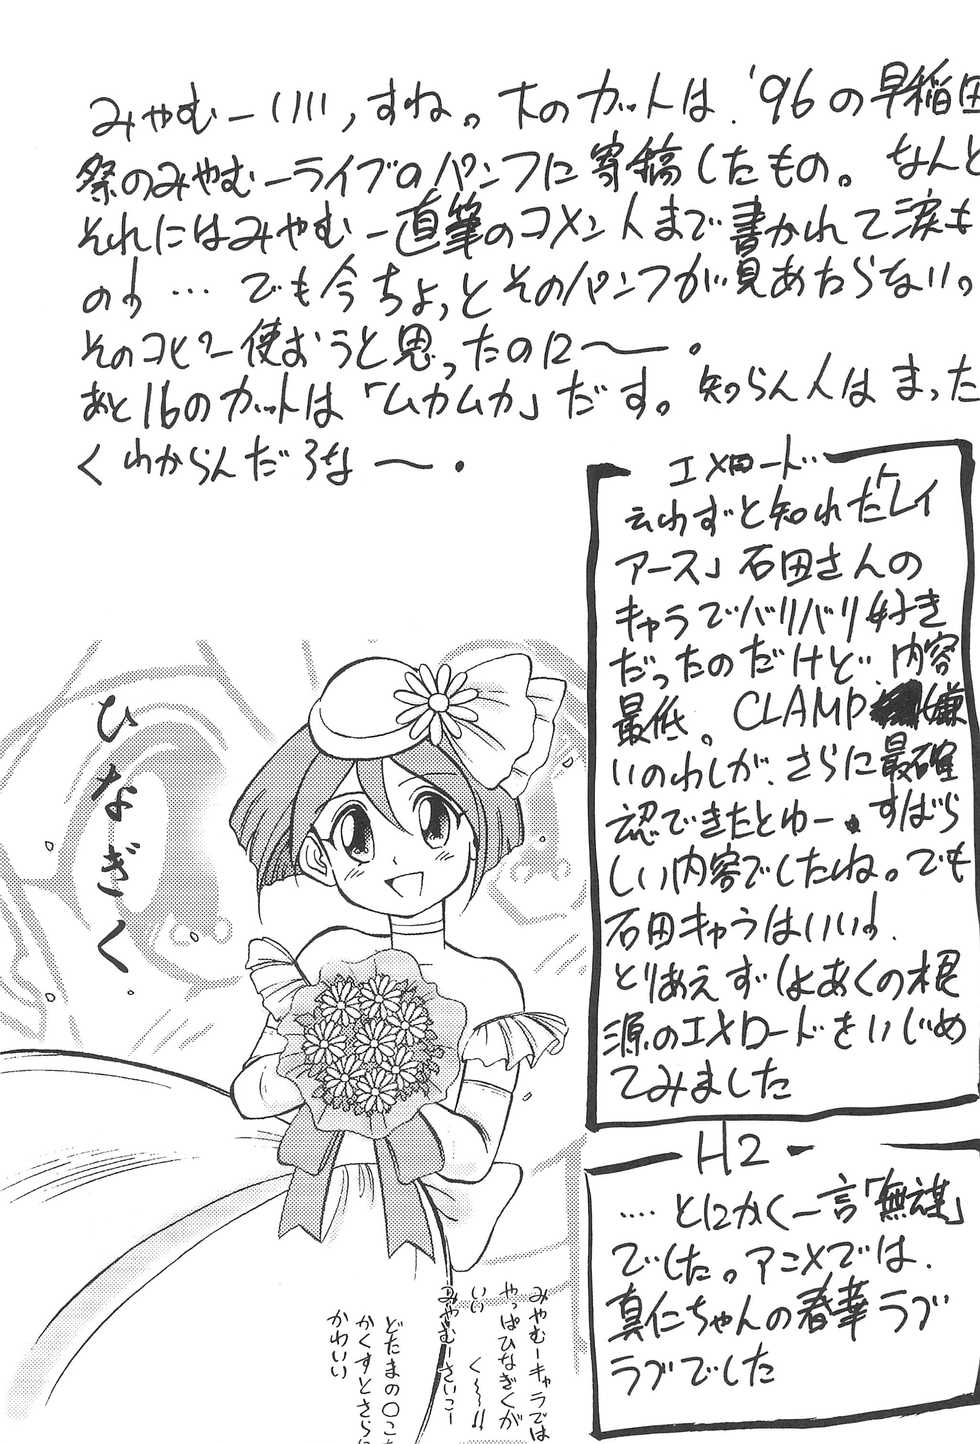 みやむーいい,すね。下のカットは'96の早稲田
祭のみやむーライブのパンフに寄稿したもの。なんと
それにはみやむー直筆のコメントまで書かれて涙も
のよ…でも今ちょっとそのパンフが見あたらない。
そのコピー使おうと思ったのに〜。
あと16のカットは「ムカムカ」だす。知らん人はまった
くわからんだろな〜。
エメロード
云わずと知れた「レイ
アース」石田さんの
キャラでバリバリ好き
だったのだけど…内容
最低。CLAMP嫌
いのわしが、さらに最確
認できたとゆー。すばら
しい内容でしたね。でも
石田キャラはいいよ。
とりあえずしょあくの根
源のエメロードをいじめ
てみました
H2
‥‥とにかく一言「無謀」
でした。アニメでは、
真仁ちゃんの春華ラブ
ラブでした
ひなぎく
みやむーキャラでは
やっぱひなぎくが
いい く〜!!
みやむーさいこー
どたまの〇こ
かくすとさらに
かわいい